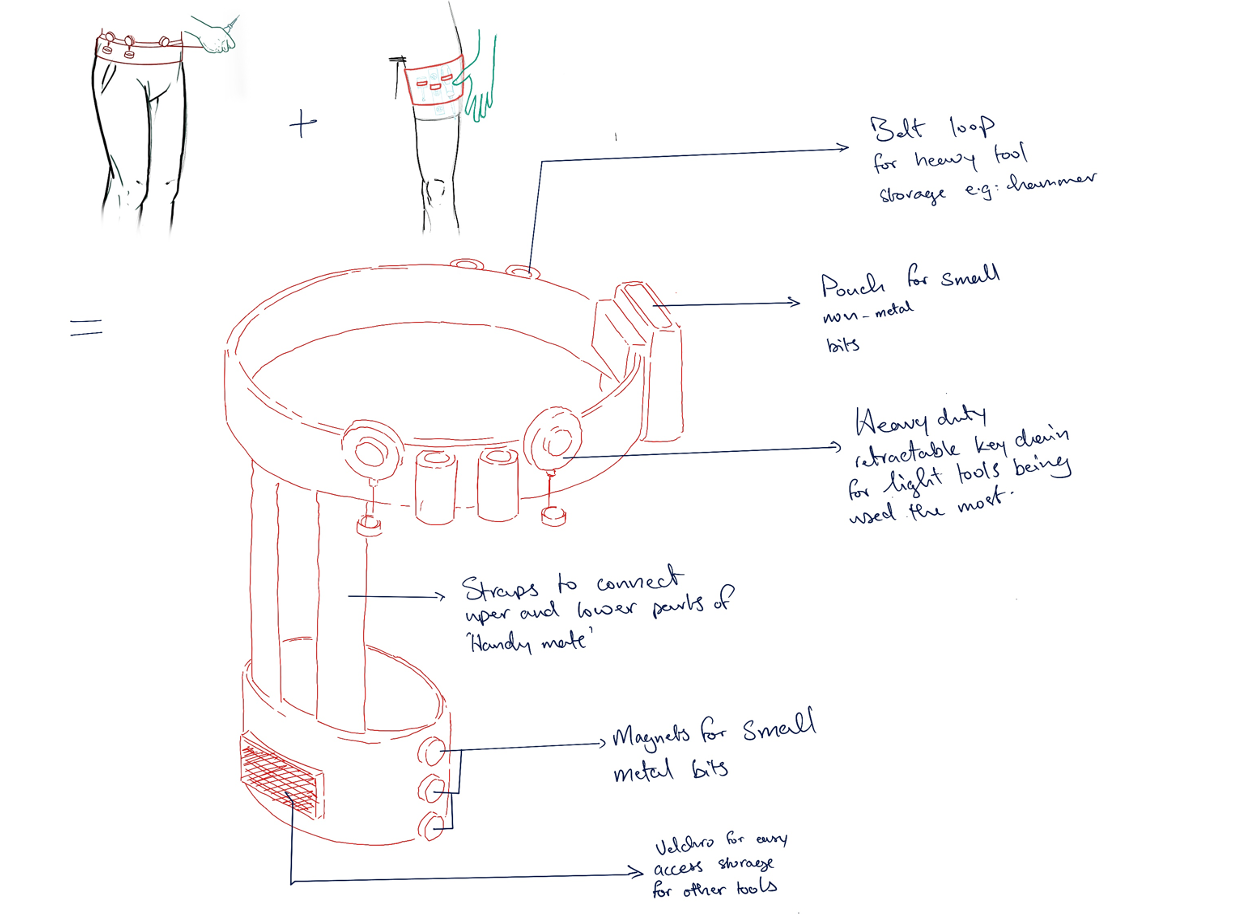 +
Belt loop
for heavy tool
storage e.g: hammer
=
Pouch for small
non-metal
bits
Heavy duty
retractable key chain
for light tools being
used the most.
Straps to connect
uper and lower parts of
'Handy mate'
Magnets for small
metal bits
Velchro for easy
access storage
for other tools